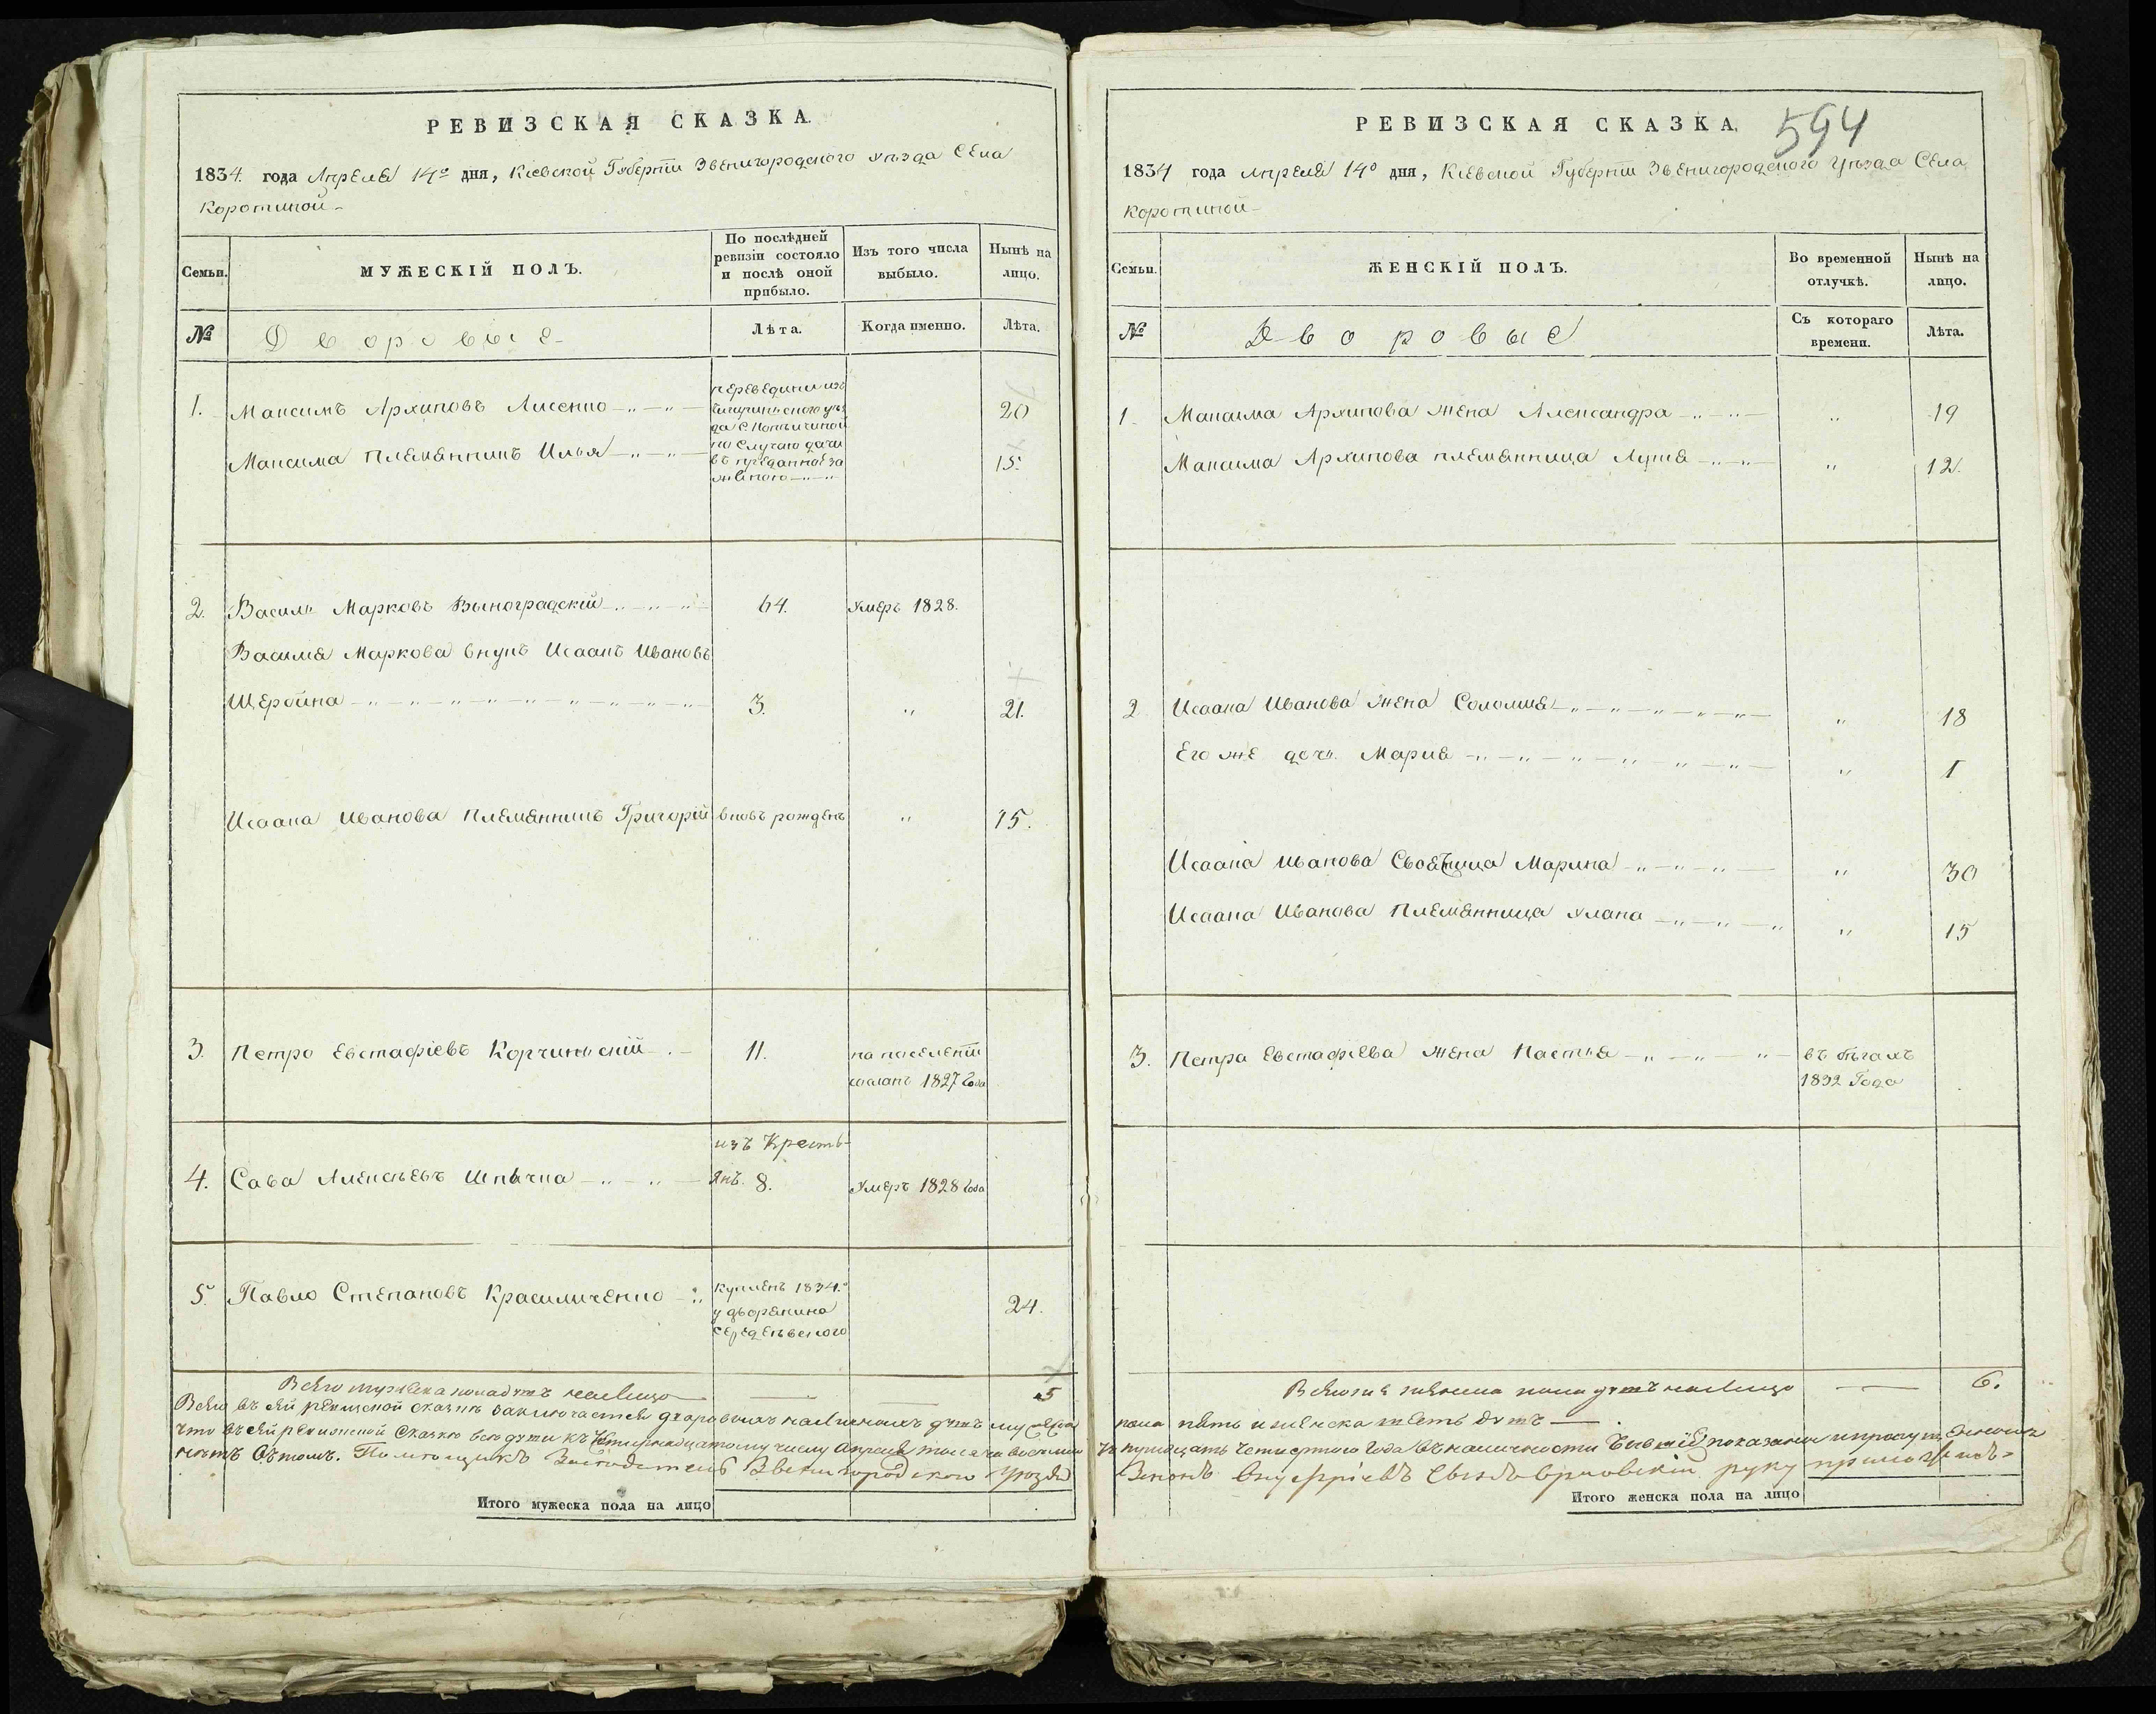 РЕВИЗСКАЯ СКАЗКА.
1834. года Апреля 14º дня, Кіевской Губерніи Звенигородского уѣзда Села
Коротиной
Семьи.
МУЖЕСКІЙ ПОЛЪ.
По послѣдней
ревизіи состояло
и послѣ оной
прибыло.
Изъ того числа
выбыло.
Нынѣ на
лицо.
№
Дворовые
Лѣта.
Когда именно.
Лѣта.
1. Максимъ Архиповъ Лисенко 20
Максима племянникъ Илья 15.
переведини изъ
да С.
по Случаю дачи
въ преданное за
2. Василь Марковъ Выноградскій 64. умеръ 1828.
Василя Маркова внукъ Исаакъ Ивановъ
Щербина 3. " 21.
Исаака Иванова племянникъ Григорій вновъ рожденъ " 15.
3. Петро Евстафіевъ Корчинскій 11. на поселеніи
сосланъ 1827 года
изъ Кресть-
4. Сава Алексѣевъ Шпычка янъ. 8. умеръ 1828 года
5. Павло Степановъ Красиличенко купленъ 1834.º 24.
у дворянина
Всего мужеска пола душъ налицо 5
Всего въ сей ревизской сказкѣ заключается дворовыхъ наличныхъ душъ мужеска
что въ сей ревизской Сказкѣ всѣ души къ Четырнадцатому числу Апреля тысяча восемьсотъ
Помещикъ Звенигородского уѣзда
Итого мужеска пола на лицо
РЕВИЗСКАЯ СКАЗКА.
594
1834 года Апреля 14º дня, Кіевской Губерніи Звенигородского уѣзда Села
Коротиной
Семьи.
ЖЕНСКІЙ ПОЛЪ.
Во временной
отлучкѣ.
Нынѣ на
лицо.
№
Дворовые
Съ котораго
времени.
Лѣта.
1. Максима Архипова жена Александра " 19
Максима Архипова племянница Луція " 12.
2 Исаака Иванова жена Соломия " 18
Его же дочь Мария " 1
Исаака Иванова Своячница Марина " 30
Исаака Иванова племянница Улана " 15
3. Петра Евстафіева жена Настья въ бѣгахъ
1832 Года
Всего женска пола душъ налицо 6.
пола пять и женска шесть душъ
тридцать четвертого года въ наличности показаны
руку приложилъ
Итого женска пола на лицо